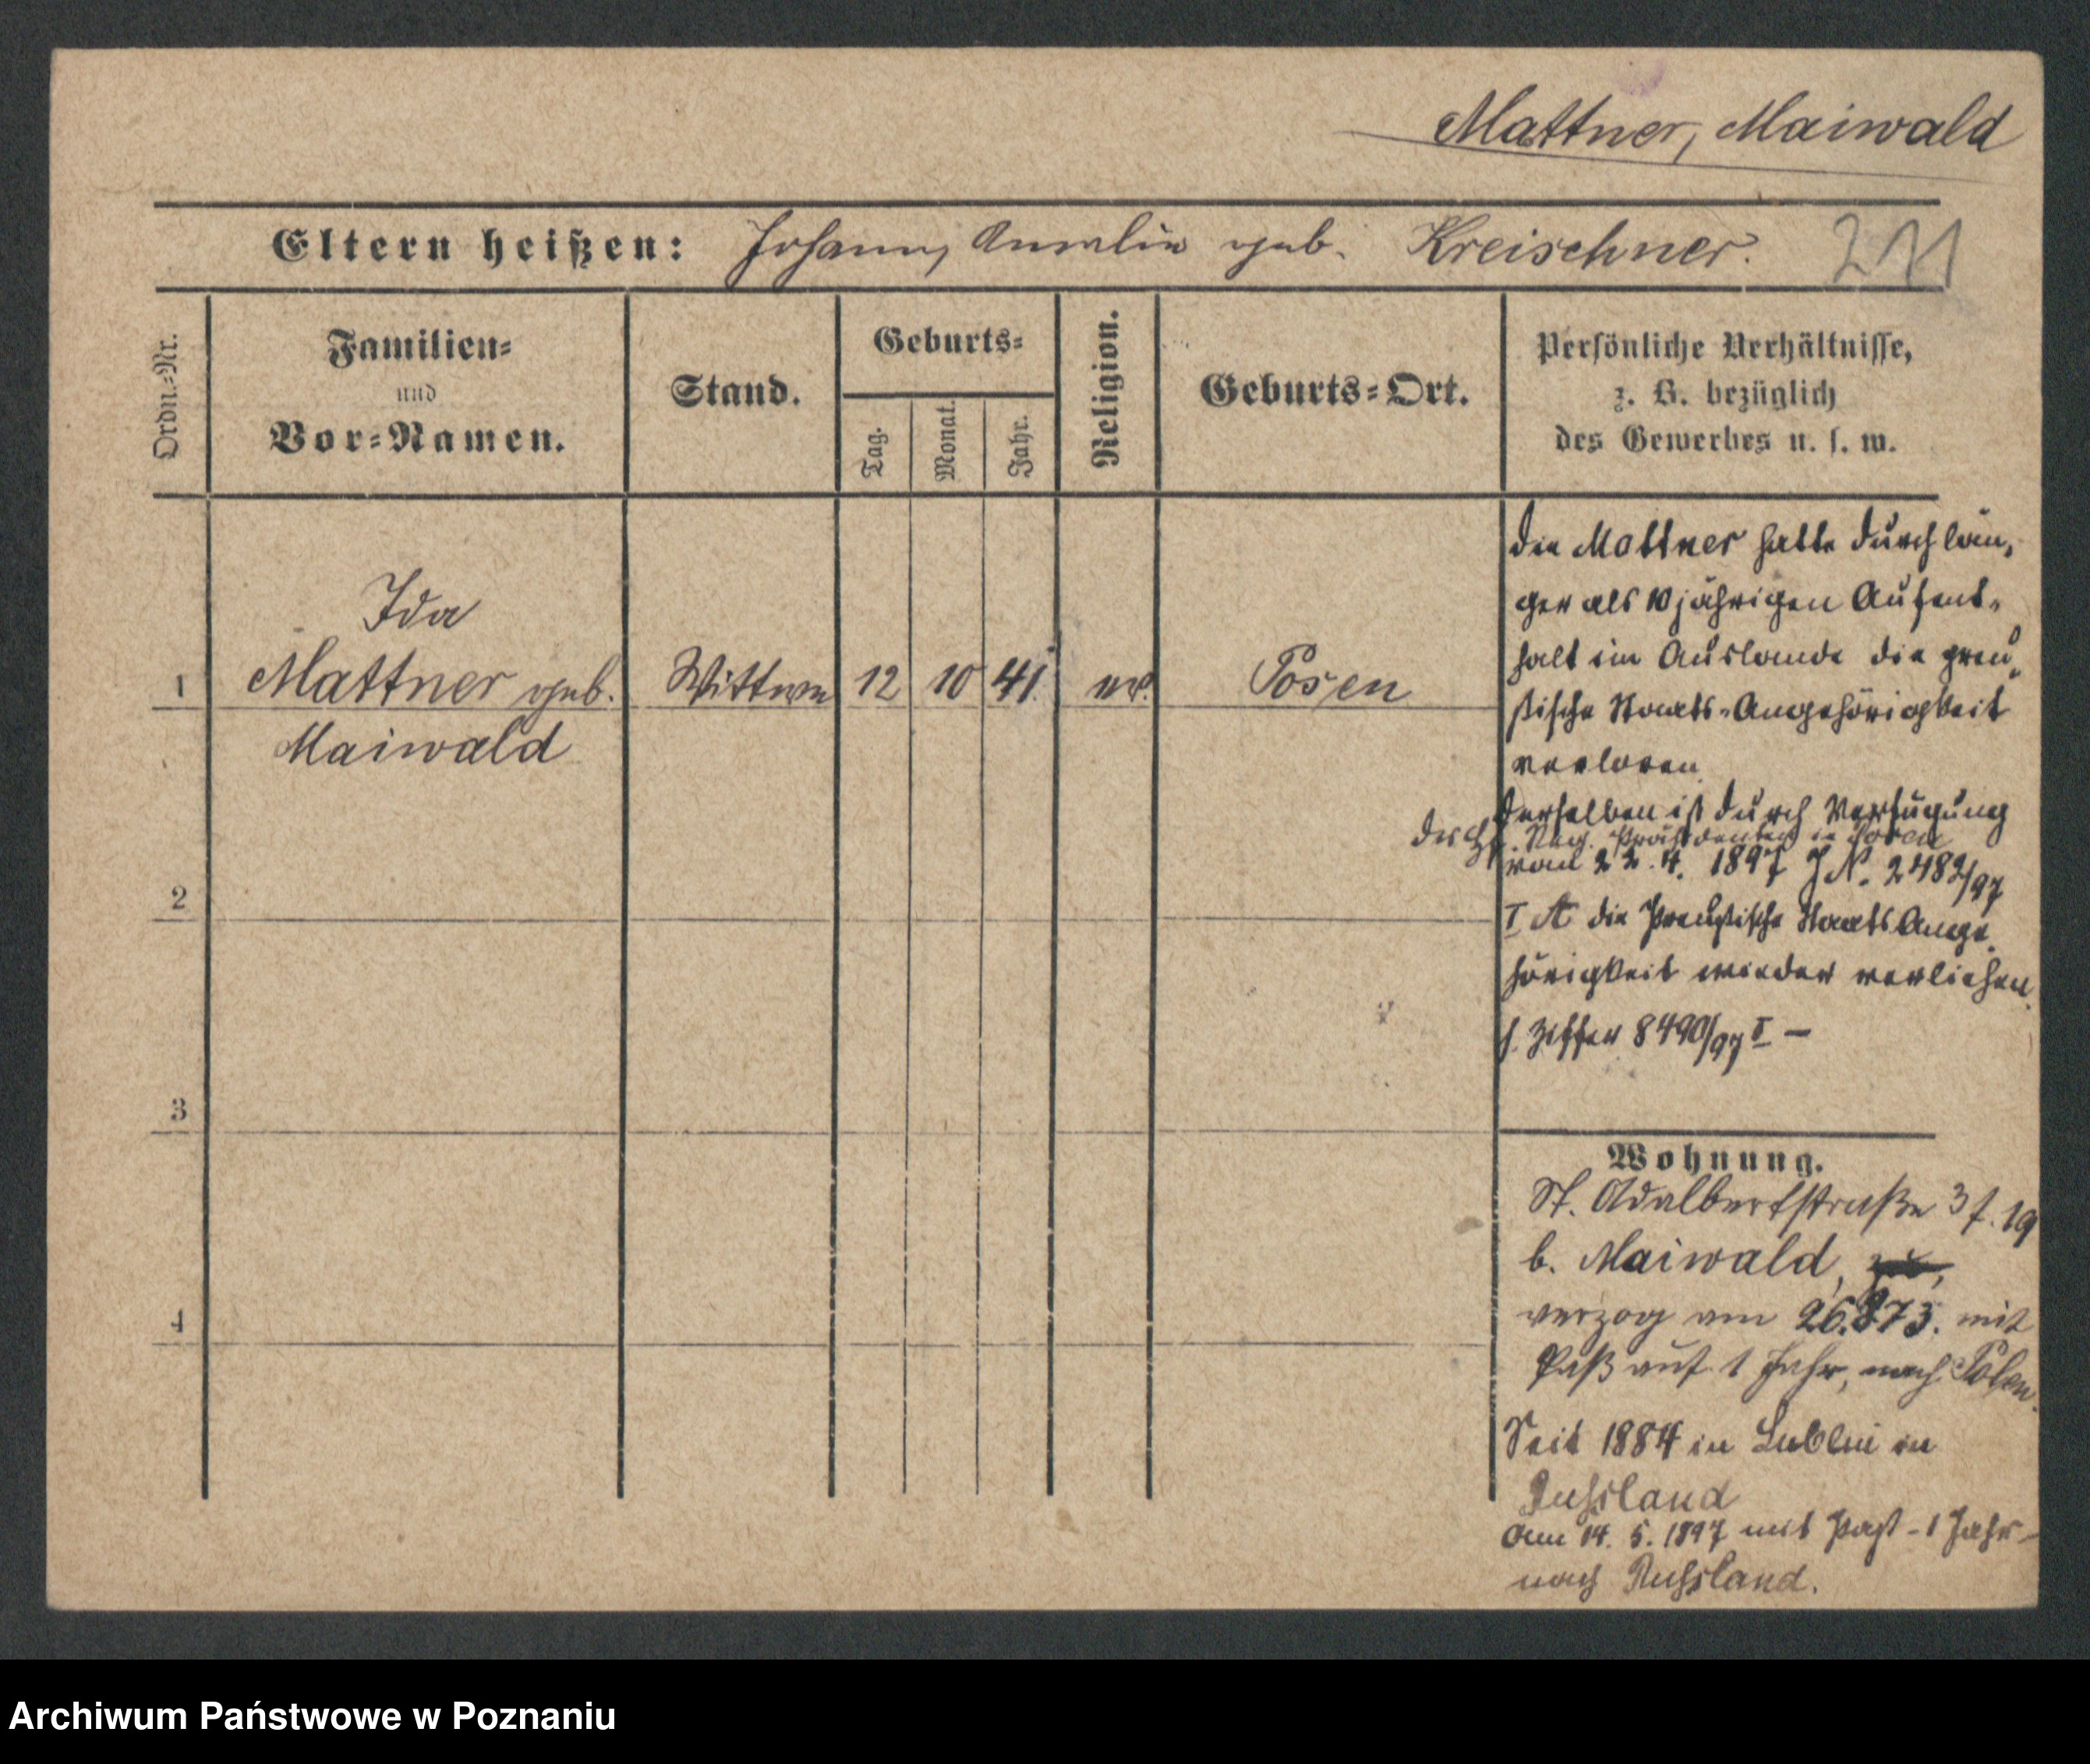 Mattner, Maiwald
Eltern heißen: Johann, Amalie geb. Kreischner. 211
Ordn.-Nr.
Familien-
und
Vor-Namen.
Stand.
Geburts-
Tag.
Monat.
Jahr.
Religion.
Geburts-Ort.
Persönliche Verhältnisse,
z. B. bezüglich
des Gewerbes u. s. w.
Ida
1 Mattner geb. Wittwe 12 10 41. ev. Posen
Maiwald
2
3
4
Die Mattner hatte durch län-
ger als 10 jährigen Aufent-
halt im Auslande die preu-
ßische Staats-Angehörigkeit
verloren
Derselben ist durch Verfügung
des H. Reg. Präsidenten in Posen
vom 22. 4. 1897 J N. 2482/97
I A die Preußische Staats Ange-
hörigkeit wieder verliehen.
s. Ziffer 8490/97 I –
Wohnung.
St. Adalbertstraße 3 f. 19
b. Maiwald,
verzog am 26.8.73. mit
Paß auf 1 Jahr, nach Polen.
Seit 1884 in Lublin in
Russland
Am 14. 5. 1897 mit Paß - 1 Jahr -
nach Russland.
Archiwum Państwowe w Poznaniu